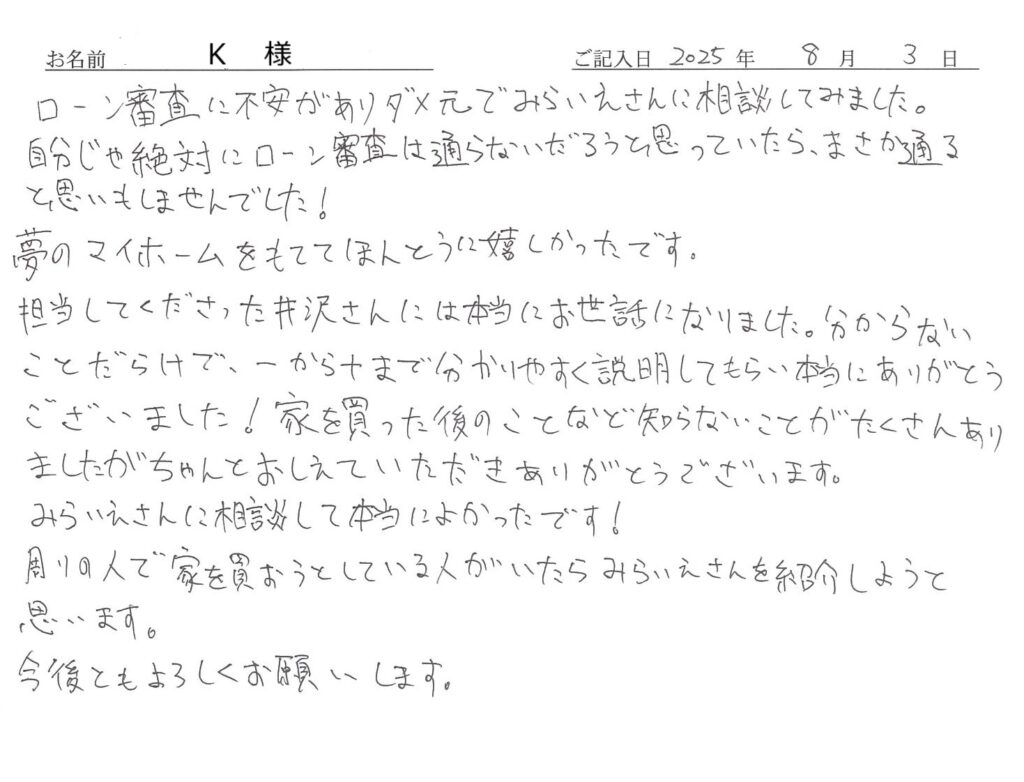 お名前 K 様 ご記入日 2025 年 8 月 3 日
ローン審査に不安がありダメ元でみらいえさんに相談してみました。
自分じゃ絶対にローン審査は通らないだろうと思っていたら、まさか通る
と思いもしませんでした！
夢のマイホームをもててほんとうに嬉しかったです。
担当してくださった井沢さんには本当にお世話になりました。分からない
ことだらけで、一から十まで分かりやすく説明してもらい本当にありがとう
ございました！家を買った後のことなど知らないことがたくさんあり
ましたがちゃんとおしえていただきありがとうございます。
みらいえさんに相談して本当によかったです！
周りの人で家を買おうとしている人がいたらみらいえさんを紹介しようと
思います。
今後ともよろしくお願いします。